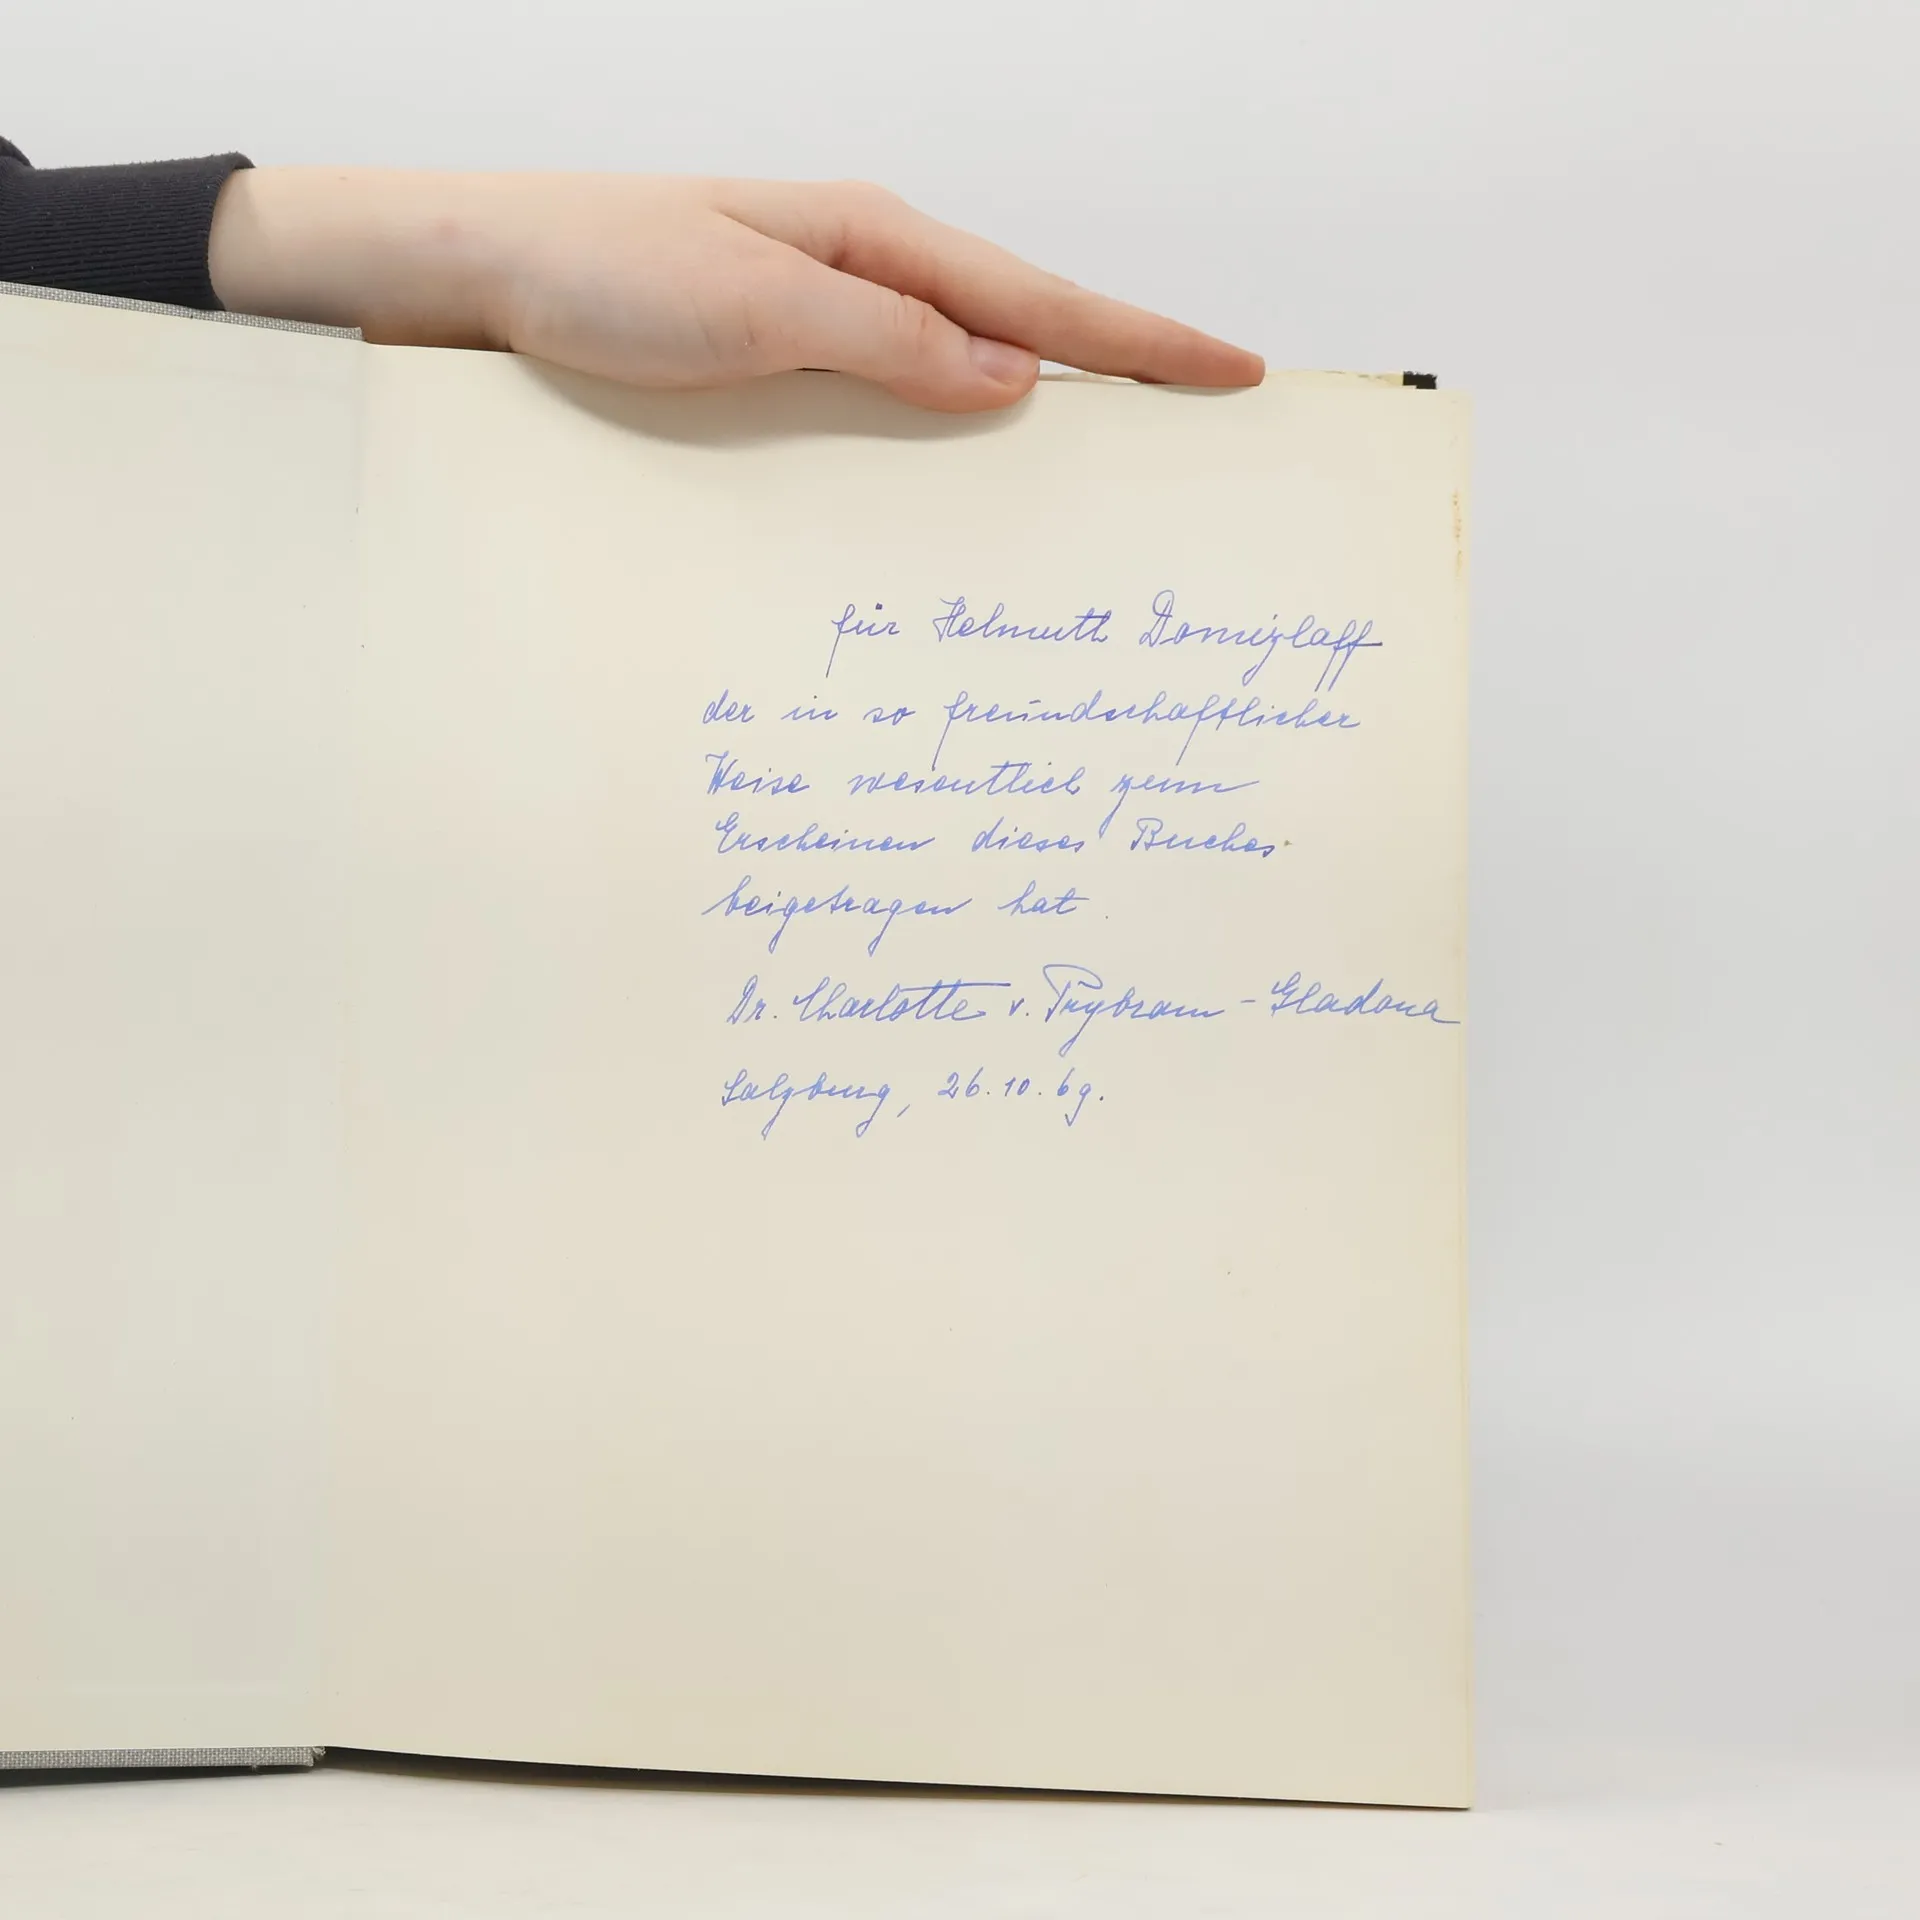 für Helmuth Domizlaff
der in so freundschaftlicher
Weise wesentlich zum
Erscheinen dieses Buches
beigetragen hat.
Dr. Charlotte v. Prybram-Gladona
Salzburg, 26.10.69.